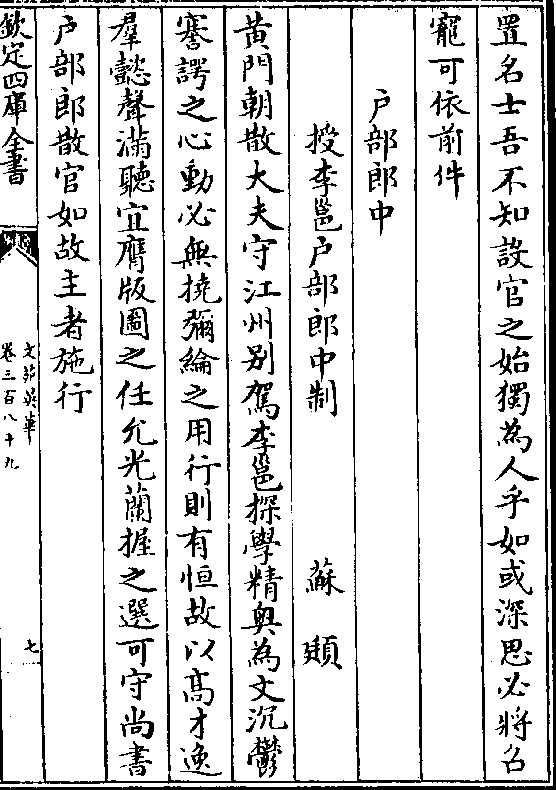 置名士吾不知設官之始獨為人乎如或深思必將名
寵可依前件
戶部郎中
授李邕戶部郎中制　蘇頲
黃門朝散大夫守江州別駕李邕探學精奧為文沉鬱
謇諤之心動必無撓彌綸之用行則有恒故以高才逸
羣懿聲滿聽宜膺版圖之任允光蘭握之選可守尚書
戶部郎散官如故主者施行
欽定四庫全書
文苑英華
卷三百八十九
七